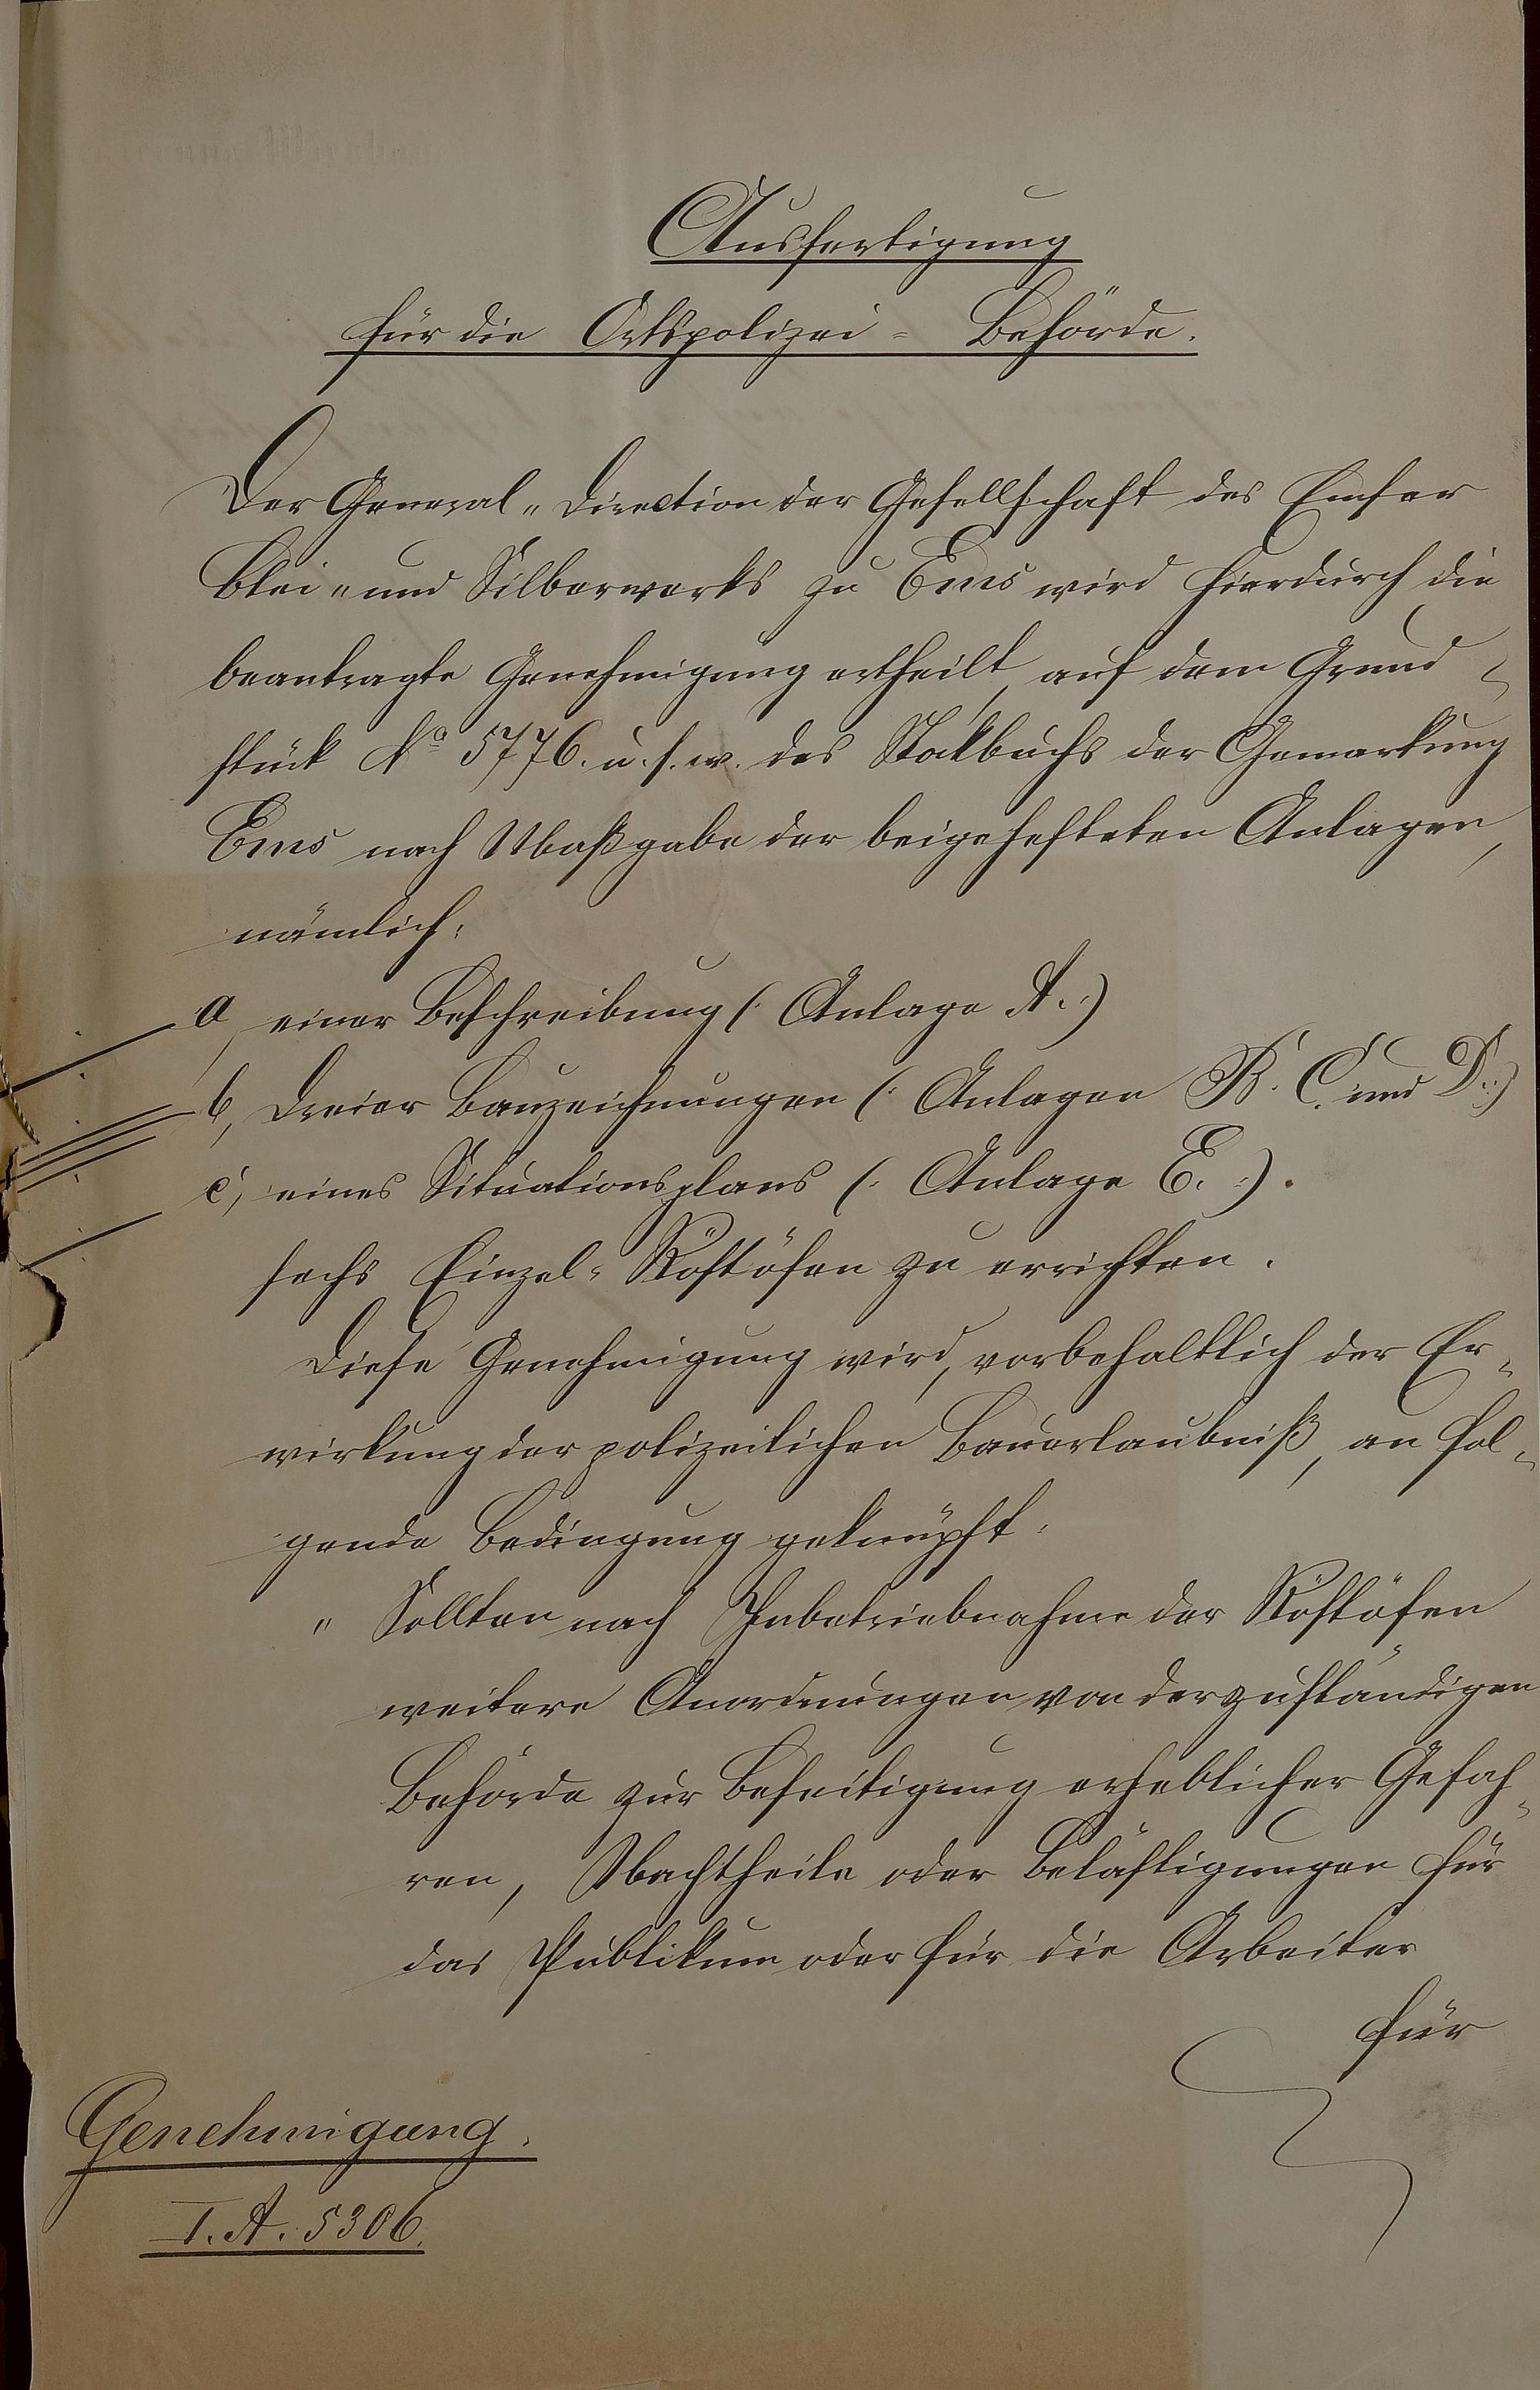 Ausfertigung
für die Ortspolizei = Behörde.
Der General-Direction der Gesellschaft des Emser
Blei- und Silberwerks zu Ems wird hierdurch die
beantragte Genehmigung ertheilt, auf dem Grund-
stück No 5776. u. s. w. des Stockbuchs der Gemarkung
Ems nach Maßgabe der beigehefteten Anlagen,
nämlich:
a, einer Beschreibung (: Anlage A. :)
b, dreier Bauzeichnungen (: Anlagen B. C. und D. :)
c, eines Situationsplans (: Anlage E. :).
sechs Einzel-Röstöfen zu errichten.
Diese Genehmigung wird, vorbehaltlich der Er-
wirkung der polizeilichen Bauerlaubniß, an fol-
gende Bedingung geknüpft:
" Sollten nach Inbetriebnahme der Röstöfen
weitere Anordnungen von der zuständigen
Behörde zur Beseitigung erheblicher Gefah-
ren, Nachtheile oder Belästigungen für
das Publikum oder für die Arbeiter
für
Genehmigung.
I. A. 5306.